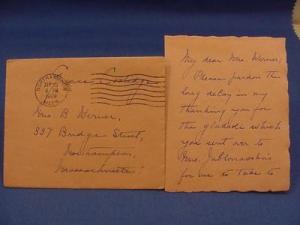 Grace Coolidge
NORTHAMPTON
MASS.
Mrs. B Werner,
337 Bridge Street,
Northampton,
Massachusetts
My dear Mrs. Werner;
Please pardon the
long delay in my
thanking you for
the gladiola which
you sent over to
Mrs. Jablonowski's
for me to take to